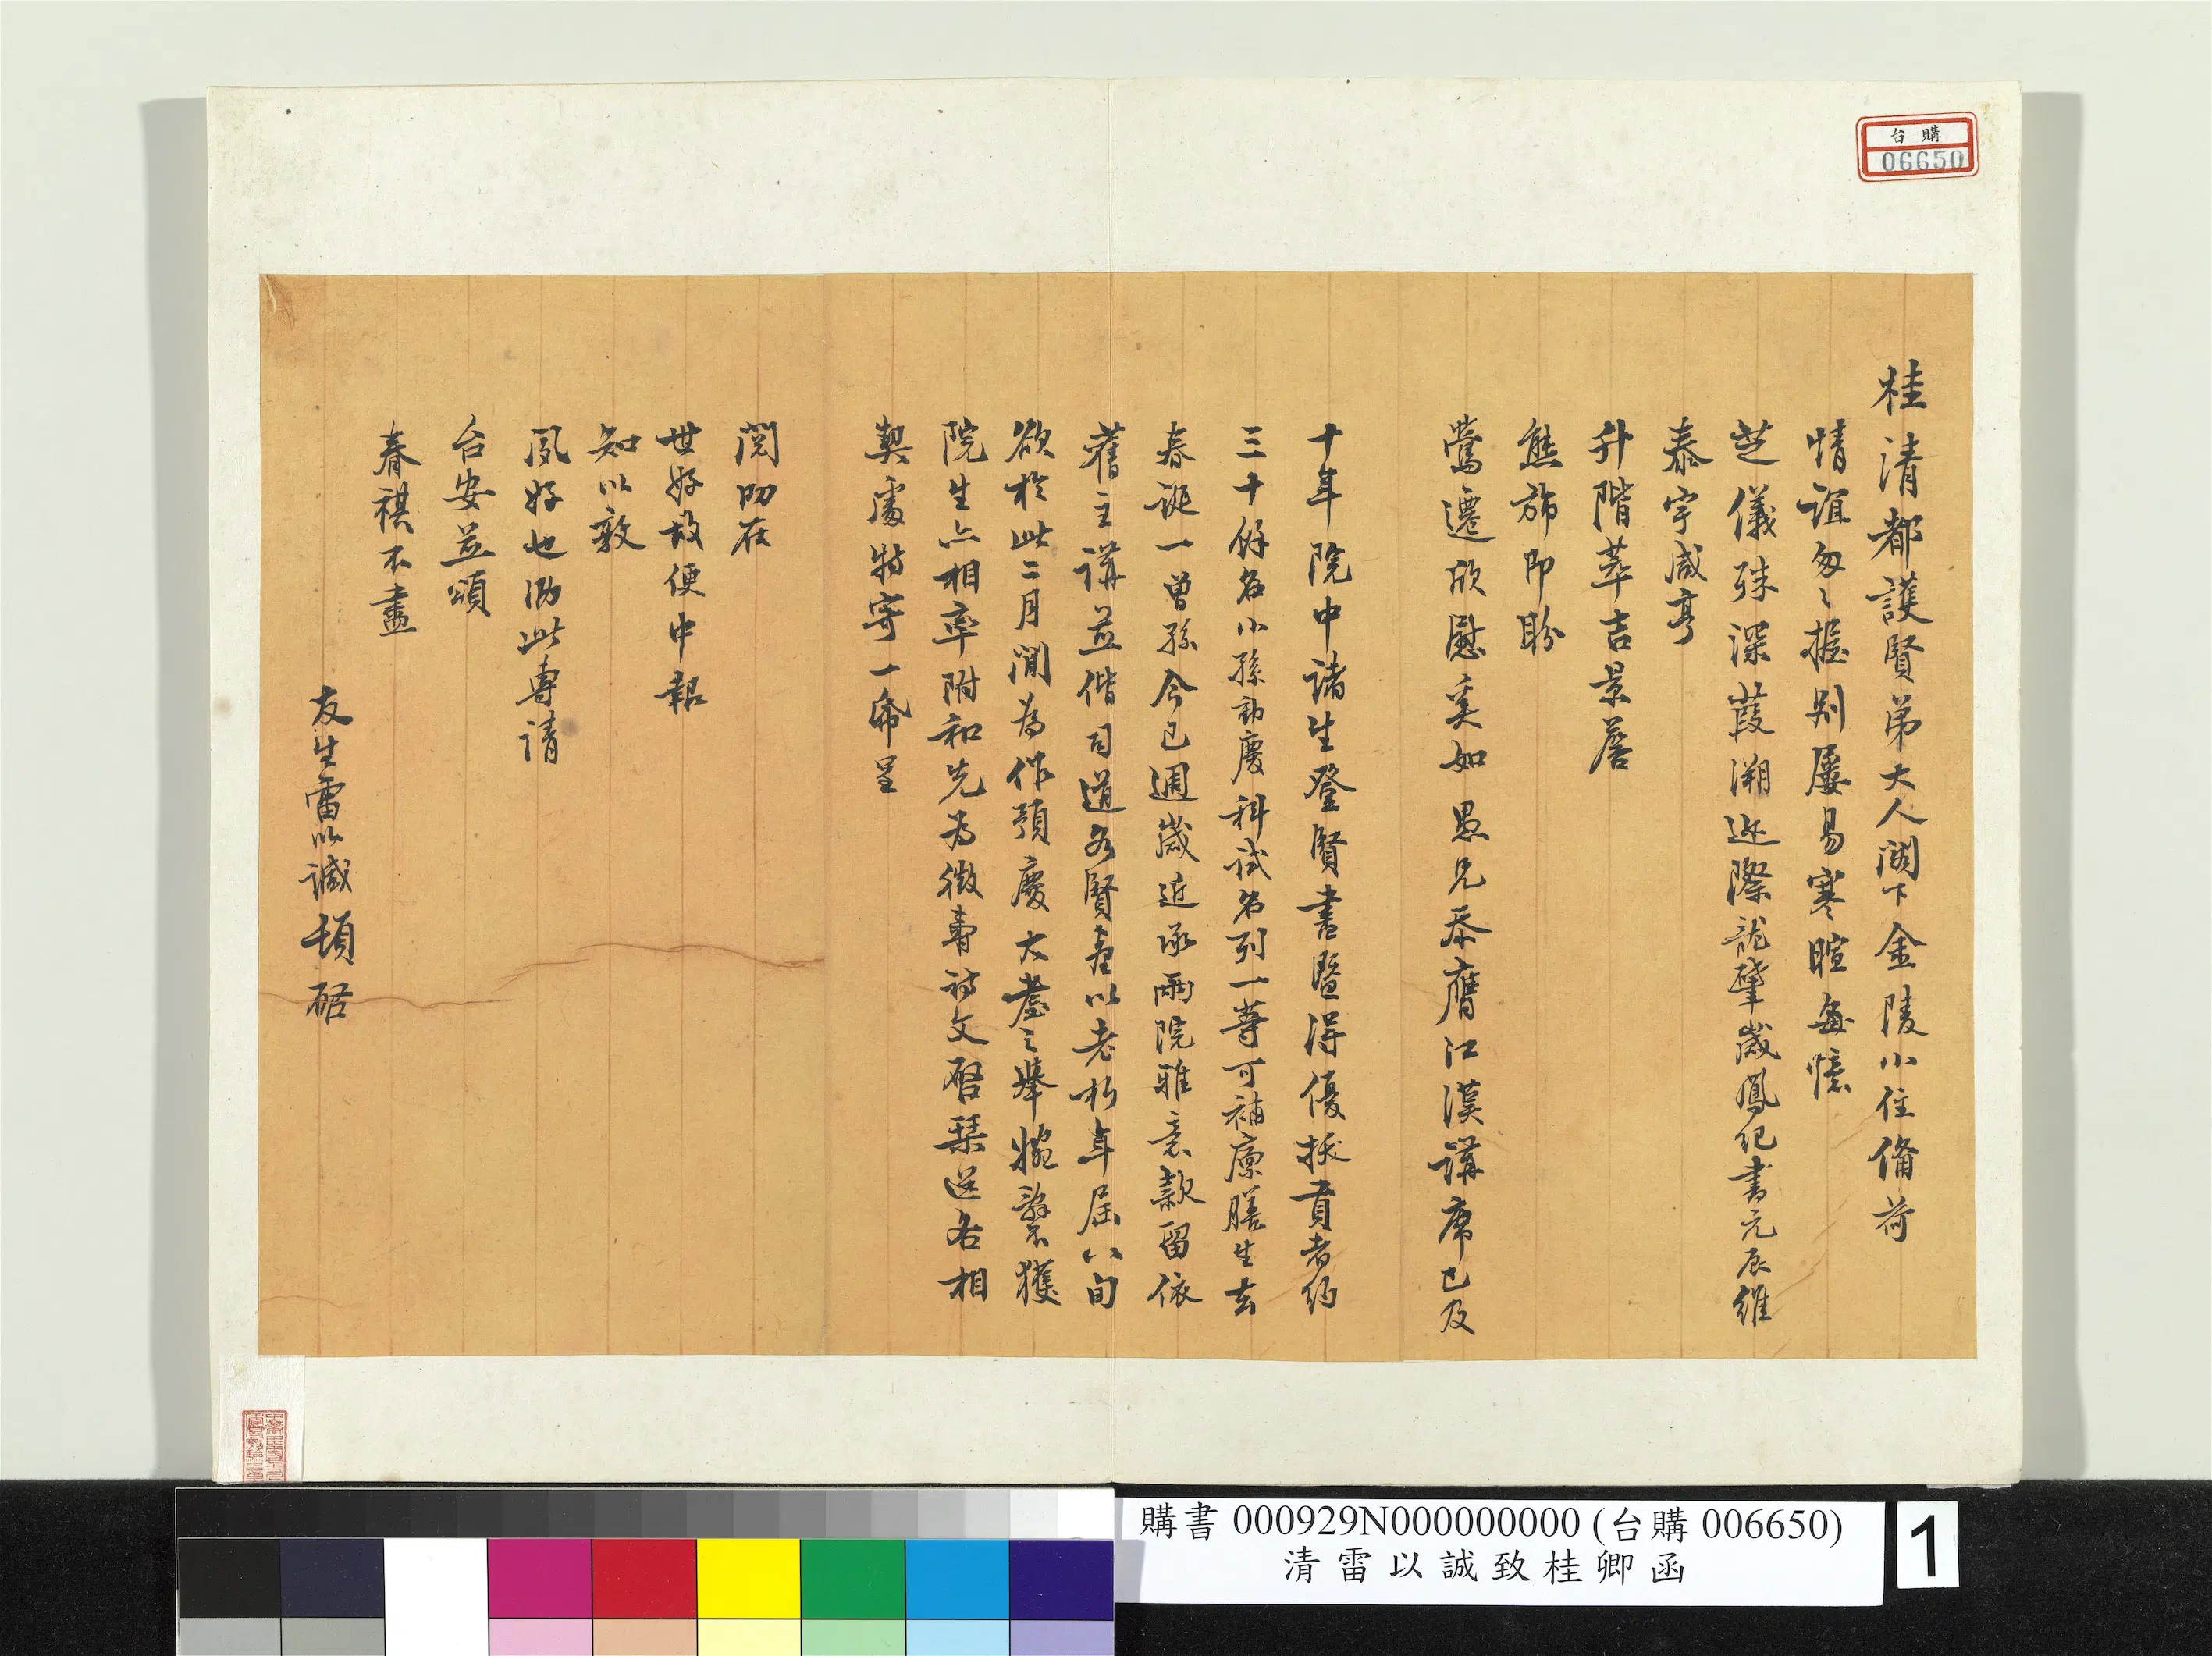 桂清都護賢弟大人閣下金陵小住備荷
情誼匆匆握別屢易寒暄每憶
芝儀殊深葭溯近際龍肇歲鳳紀書元辰維
泰宇咸亨
升階萃吉景詹
熊旆即盼
鶯遷欣慰奚如愚兄忝膺江漢講席已及
十年院中諸生登賢書暨得優拔貢者約
三十餘名小孫勷慶科試名列一等可補廩膳生去
春誕一曾孫今已週歲近承兩院雅意款留依
舊主講並偕司道各賢臺以老朽年屆八旬
欲於此二月間為作預慶大耋之舉婉辭不獲
院生亦相率附和先為徵壽詩文啓琹送各相
契處特寄一帋呈
閱叨在
世好故便中報
知以敦
夙好也泐此專請
台安並頌
春祺不盡
友生雷以諴頓啓
台購
06650
購書 000929N000000000 (台購 006650)
清雷以誠致桂卿函
1